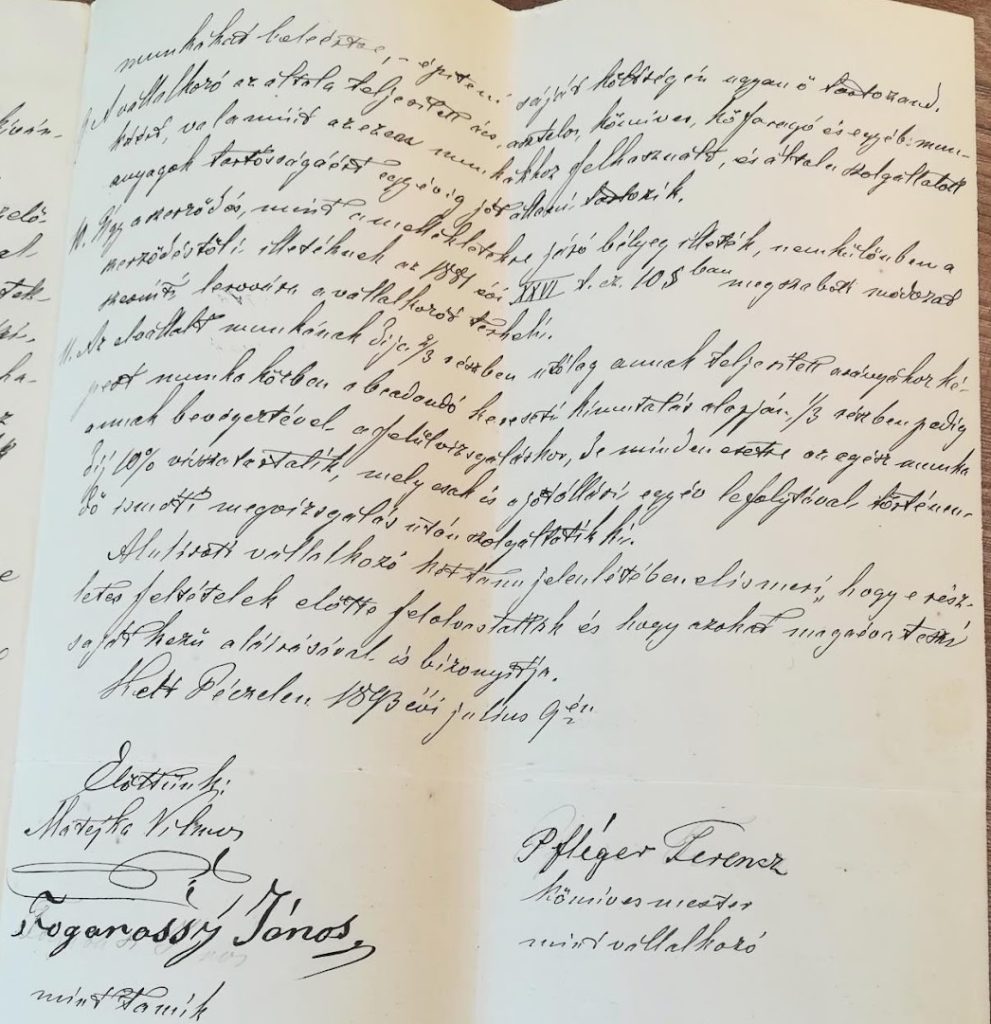 munkákat beleértve, – építeni saját költségén ugyan ő tartozand.
A vállalkozó az általa teljesített ács, asztalos, kőmíves, kőfaragó és egyéb mun-
káért, valamint az ezen munkákhoz felhasznált, és általa szolgáltatott
anyagok tartósságáért egy évig jótállani tartozik.
10. Úgy a szerződés, mint a mellékletekre járó bélyeg illeték, nemkülönben a
szerződéstőli illetéknek az 1881 évi XXVI t. cz. 10 § ban megszabott módozat
szerinti lerovása a vállalkozót terheli.
11. Az elvállalt munkának díja 2/3 részben utólag annak teljesített arányához ké-
pest munka közben a beadandó kereseti kimutatás alapján, 1/3 részben pedig
annak bevégeztével a felülvizsgáláskor, de minden esetre az egész munka
díj 10% visszatartatik, mely csak is a jótállási egy év lefolytával történen-
dő ismételt megvizsgálás után szolgáltatik ki.
Alulírott vállalkozó két tanu jelenlétében elismeri, hogy e rész-
letes feltételek előtte felolvastattak és hogy azokat magáévá teszi
saját kezű aláírásával is bizonyítja.
Kelt Péczelen 1893 évi julius 9 én
Előttünk:
Matejka Vilmos
Fogarassy János,
mint tanúk
Pfléger Ferencz
kőmíves mester
mint vállalkozó